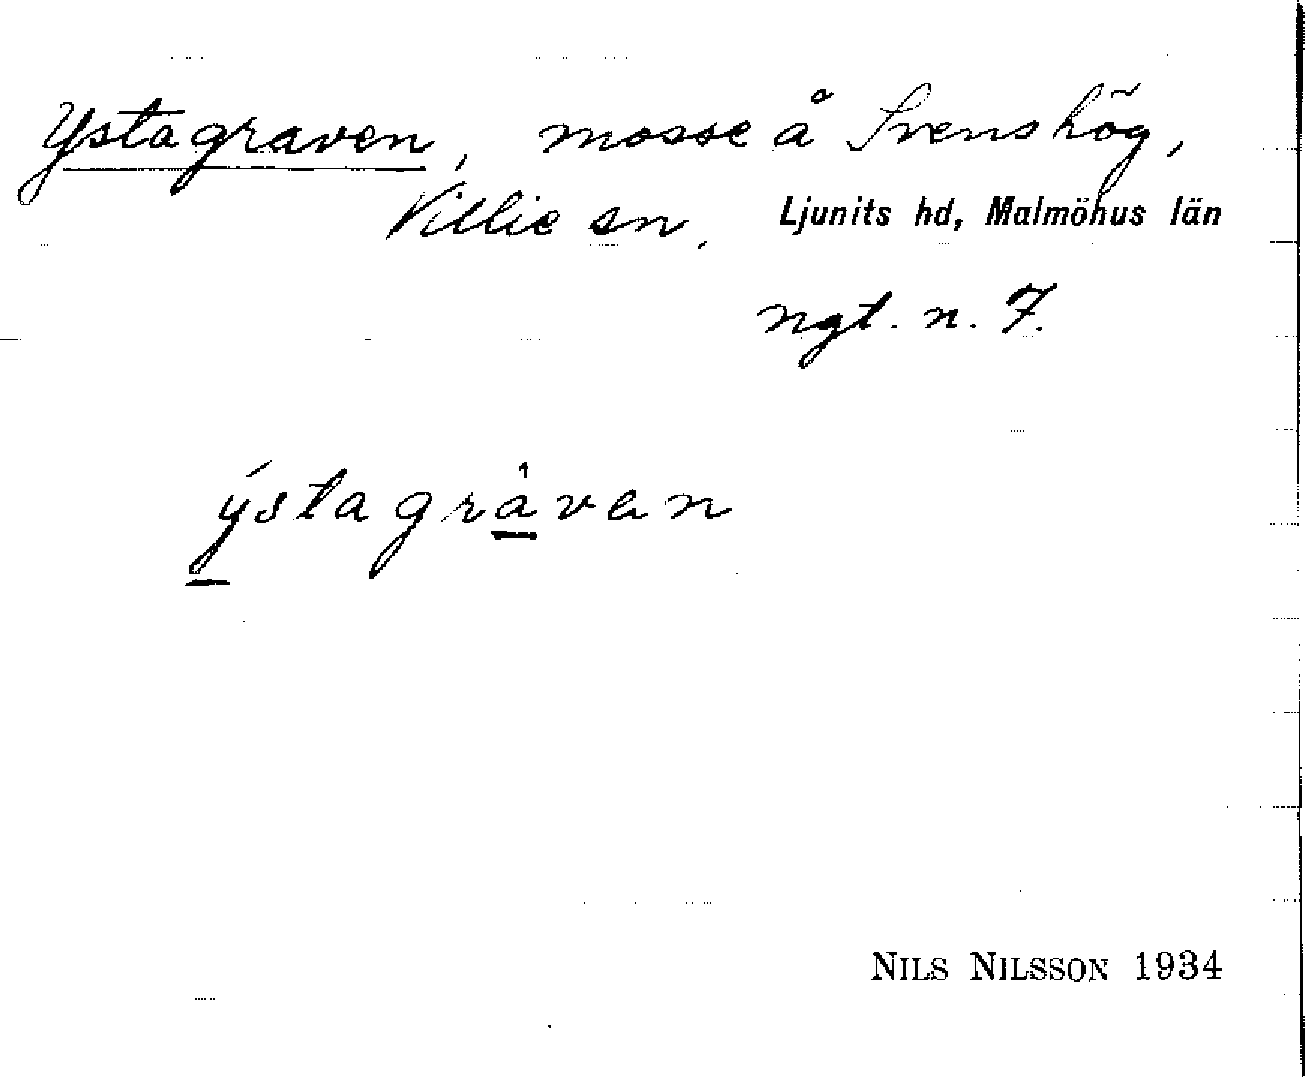 Ystagraven, mosse å Svenshög,
Villie sn, Ljunits hd, Malmöhus län
ngt. n. 7.
ýstagràvan
NILS NILSSON 1934